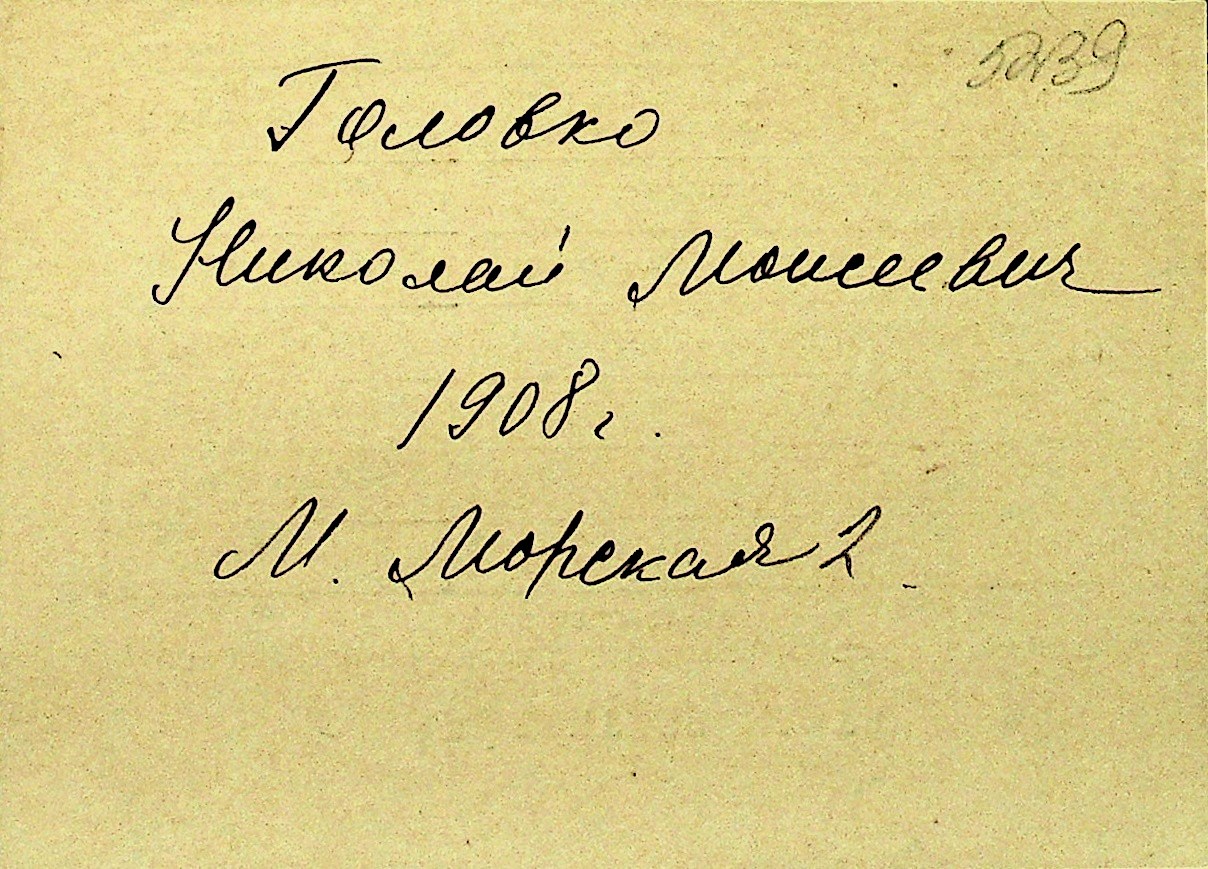 5239
Головко
Николай Моисеевич
1908г.
М. Морская 2